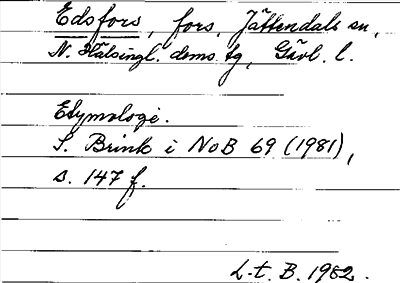 Edsfors, fors, Jättendals sn,
N. Hälsingl. doms. tg, Gävl. l.
Etymologi.
S. Brink i NoB 69 (1981),
s. 147 f.
L-t. B. 1982.